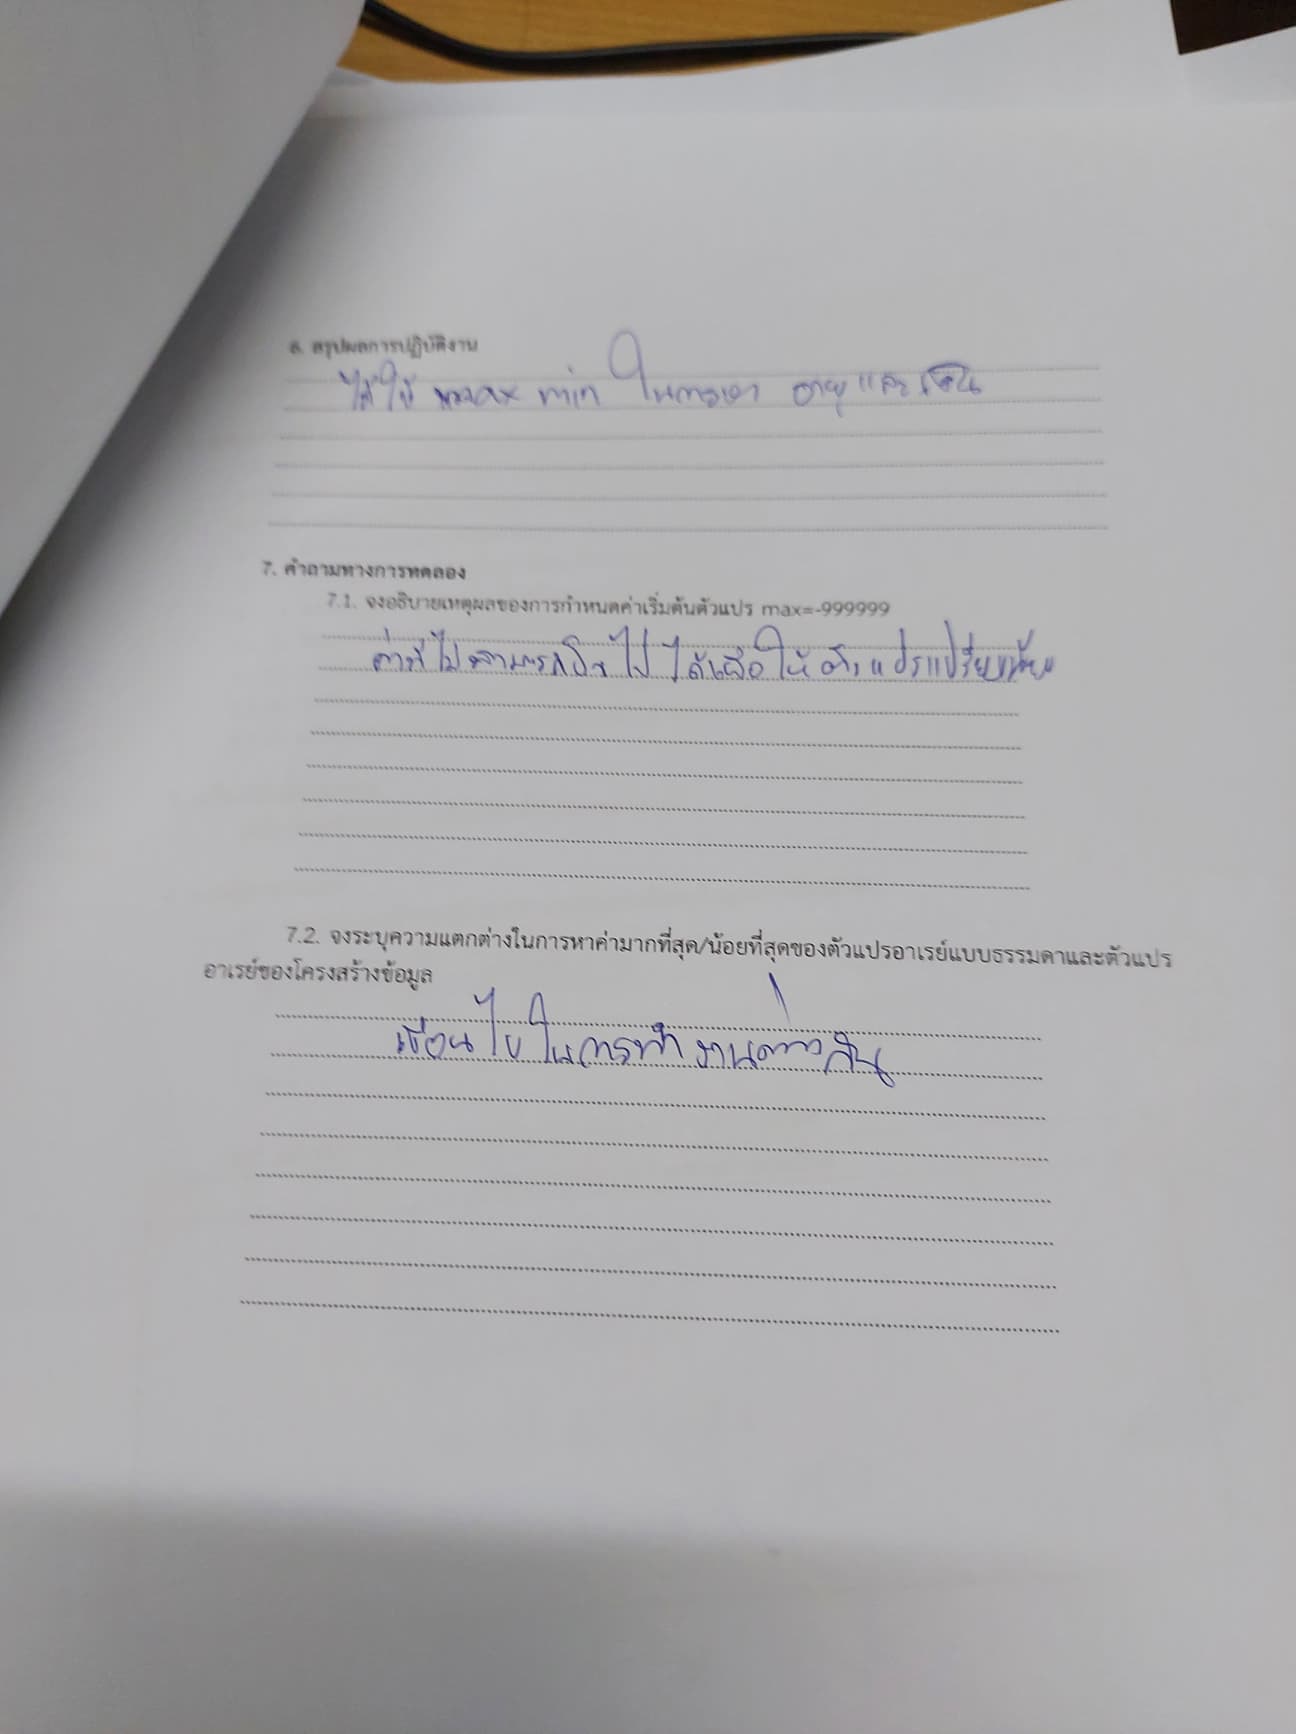 6. สรุปผลการปฏิบัติงาน
ได้ใช้ max min ในการหา อายุ และ เงิน
7. คำถามทางการทดลอง
7.1. จงอธิบายเหตุผลของการกำหนดค่าเริ่มต้นตัวแปร max=-999999
ค่าที่ไม่สามารถเป็นไปได้เพื่อให้ตัวแปรเปรียบเทียบ
7.2. จงระบุความแตกต่างในการหาค่ามากที่สุด/น้อยที่สุดของตัวแปรอาเรย์แบบธรรมดาและตัวแปร
อาเรย์ของโครงสร้างข้อมูล
เงื่อนไขในการทำงานต่างกัน